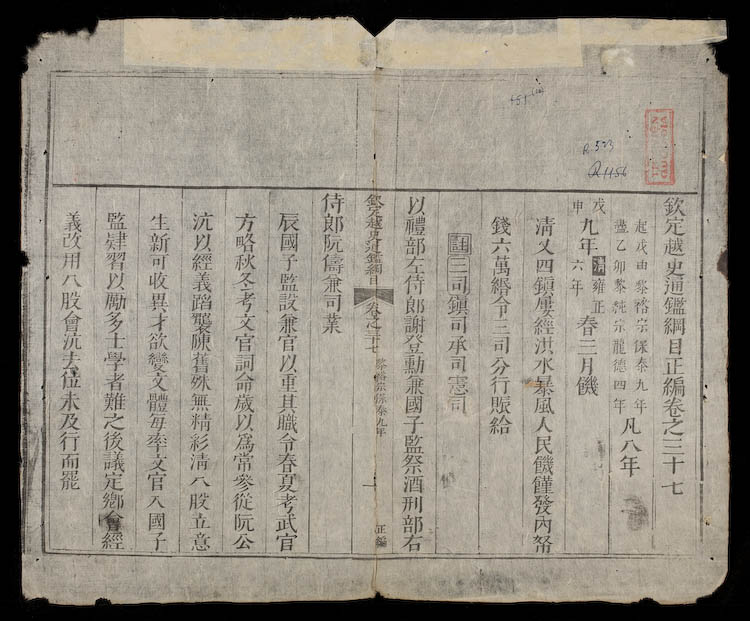 欽定越史通鑑綱目正編卷之三十七
起戊申黎裕宗保泰九年
盡乙卯黎純宗龍德四年
凡八年
戊申
九年
清雍正六年
春三月饑
清乂四鎮屢經洪水暴風人民饑僅發內帑
錢六萬緡令三司分行賑給
註三司鎮司承司憲司
以禮部左侍郎謝登勳兼國子監祭酒刑部右
欽定越史通鑑綱目 卷之三十七 黎裕宗保泰九年 一 正編
侍郎阮儔兼司業
辰國子監設兼官以重其職令春夏考武官
方略秋冬考文官詞命歲以爲常參從阮公
沆以經義蹈襲陳舊殊無精彩清八股立意
生新可收異才欲變文體每率文官入國子
監肄習以勵多士學者難之後議定鄉會經
義改用八股會沆去位未及行而罷
R.523
R.1186